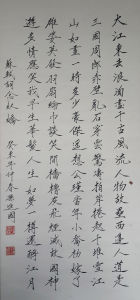 大江東去浪淘盡千古風流人物故壘西邊人道是
三國周郎赤壁亂石穿雲驚濤拍岸捲起千堆雪江
山如畫一時多少豪傑遙想公瑾當年小喬初嫁了
雄姿英發羽扇綸巾談笑間檣櫓灰飛煙滅故國神
遊多情應笑我早生華髮人生如夢一樽還酹江月
蘇軾詞念奴嬌
癸未年仲春